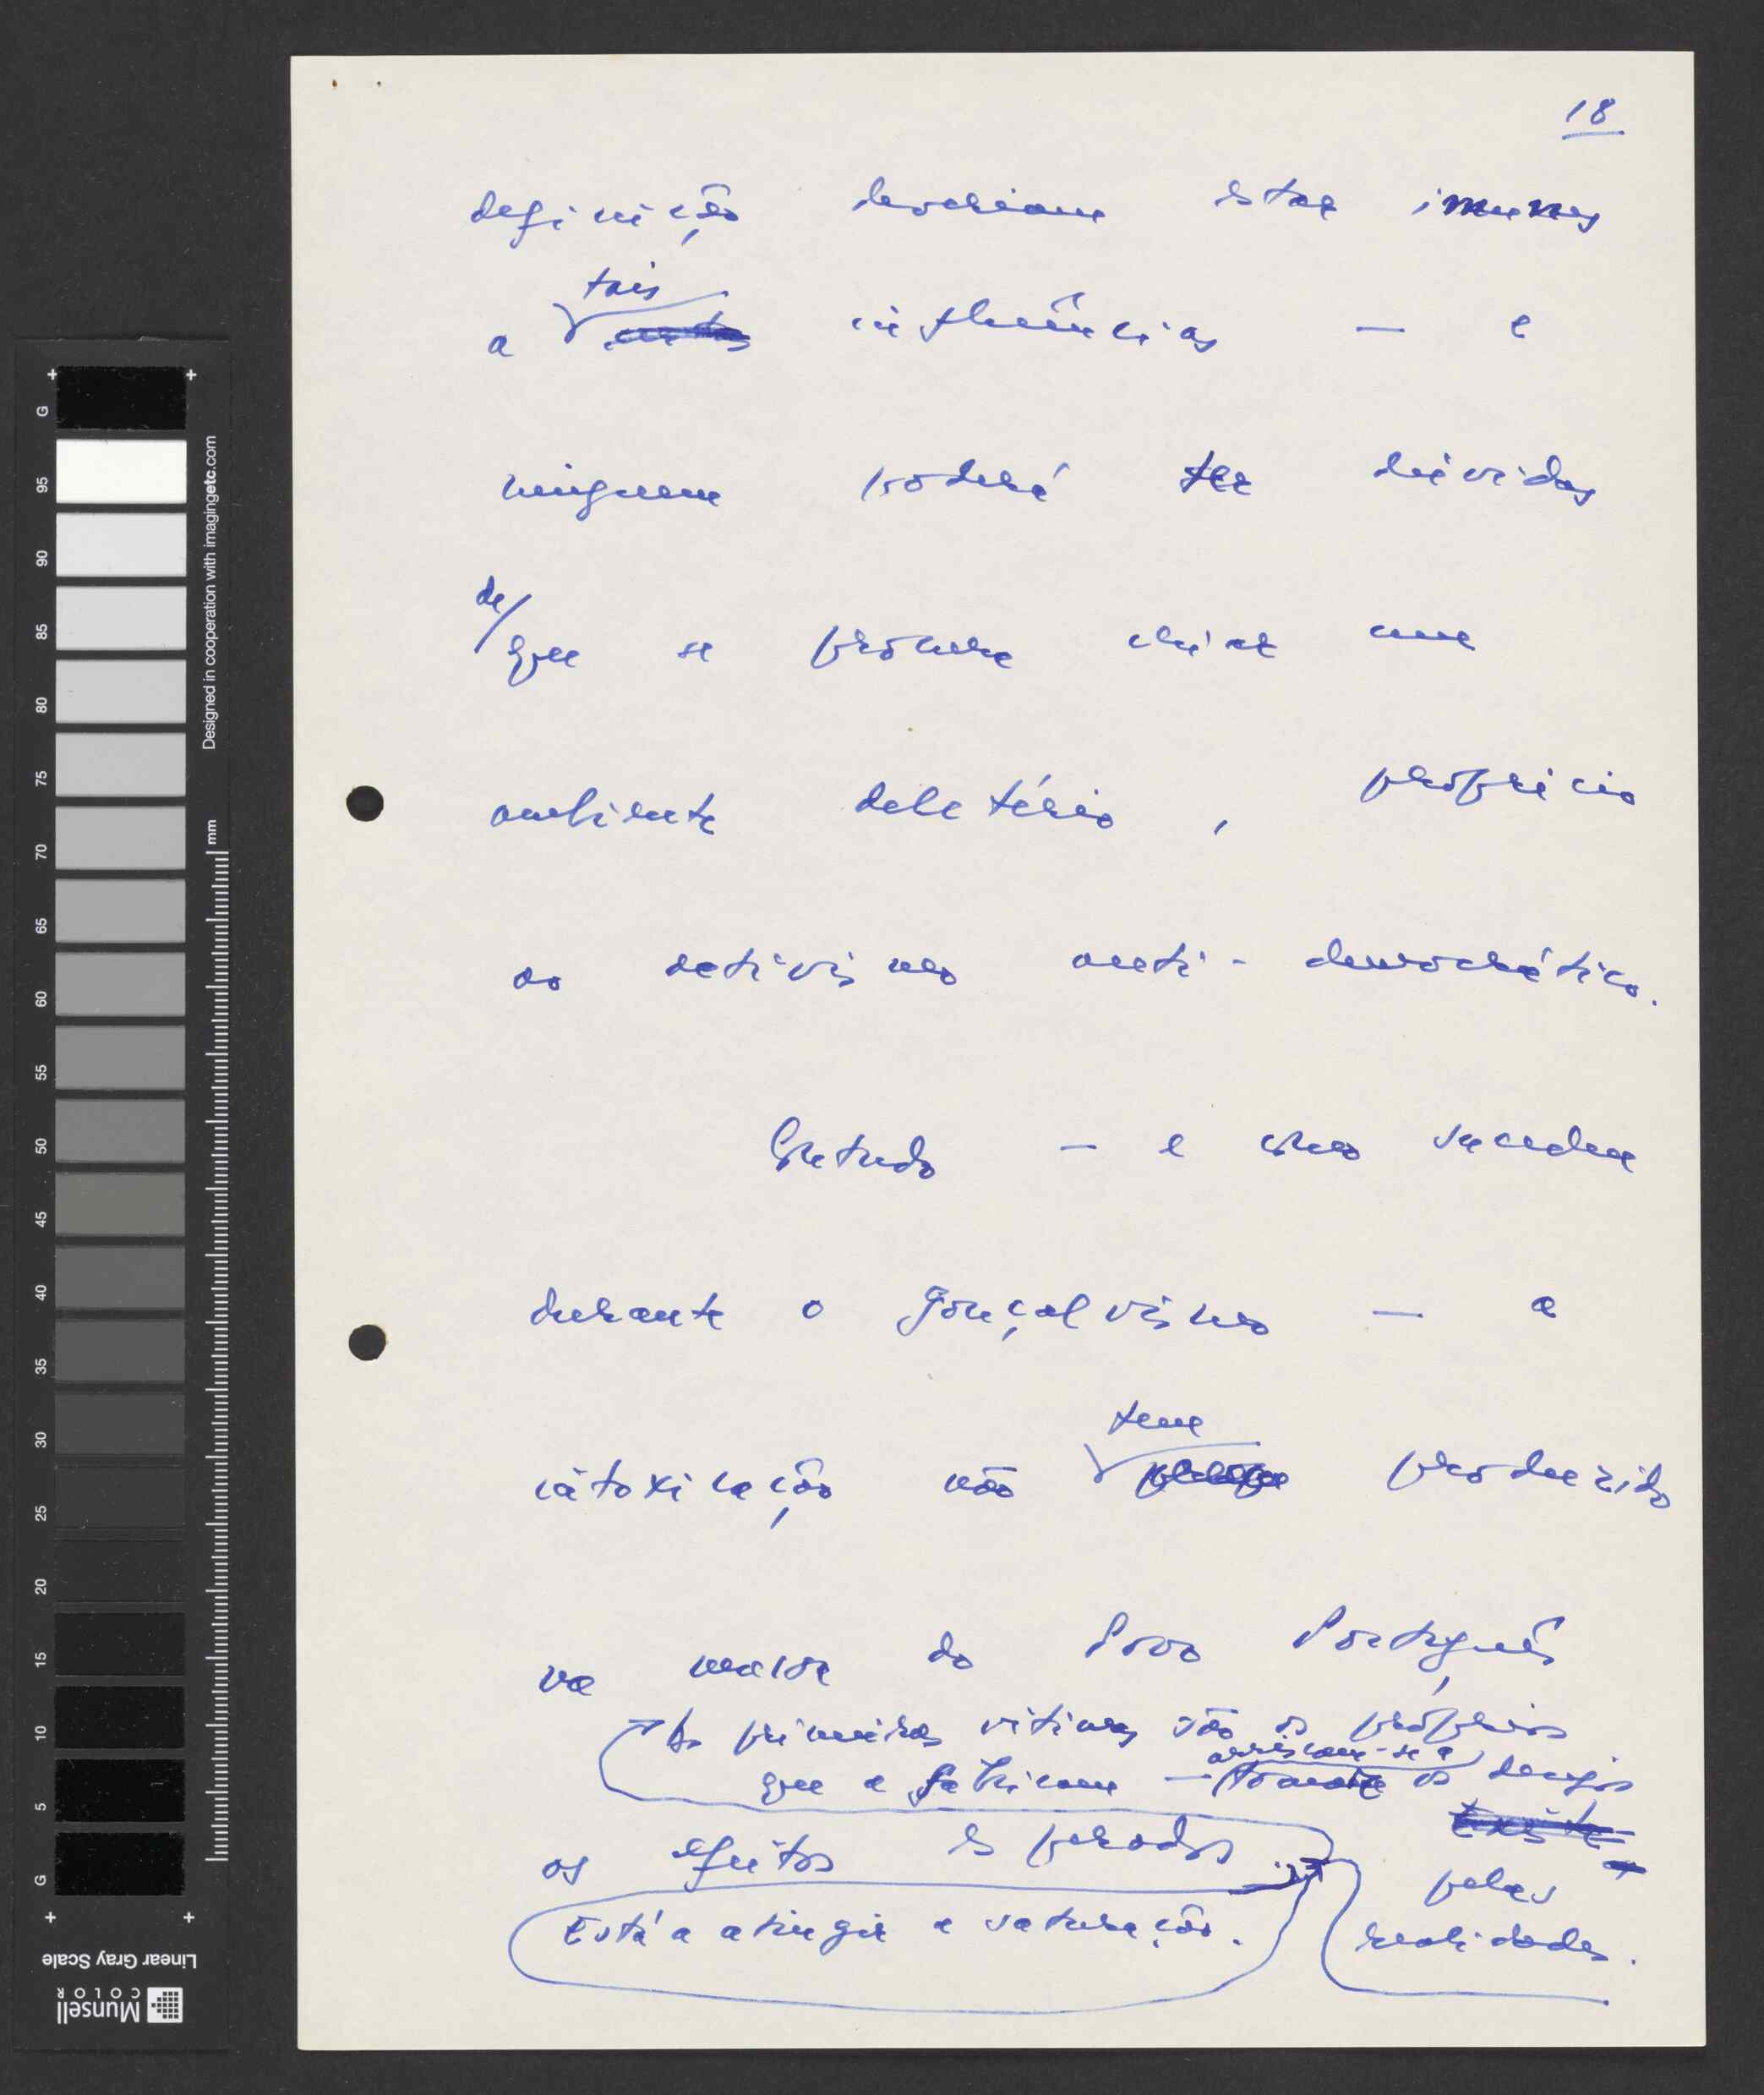 18
definição deveriam estar imunes
tais
a influências — e
ninguem poderá ter dúvidas
de/
que se procura criar um
ambiente deletério, propício
ao activismo anti-democrático.
Contudo — e como sucedeu
durante o gonçalvismo — a
intoxicação não produzido
tem
na massa do Povo Português
As primeiras vítimas são os próprios
arriscam-se a
que a fabricam — os
os efeitos esperados.
pelas
Está a atingir a saturação.
realidades.
G
95
90
85
80
75
70
65
60
55
50
45
40
35
30
25
20
15
10
5
G
Designed in cooperation with imagingetc.com
mm
Linear Gray Scale
Munsell
COLOR